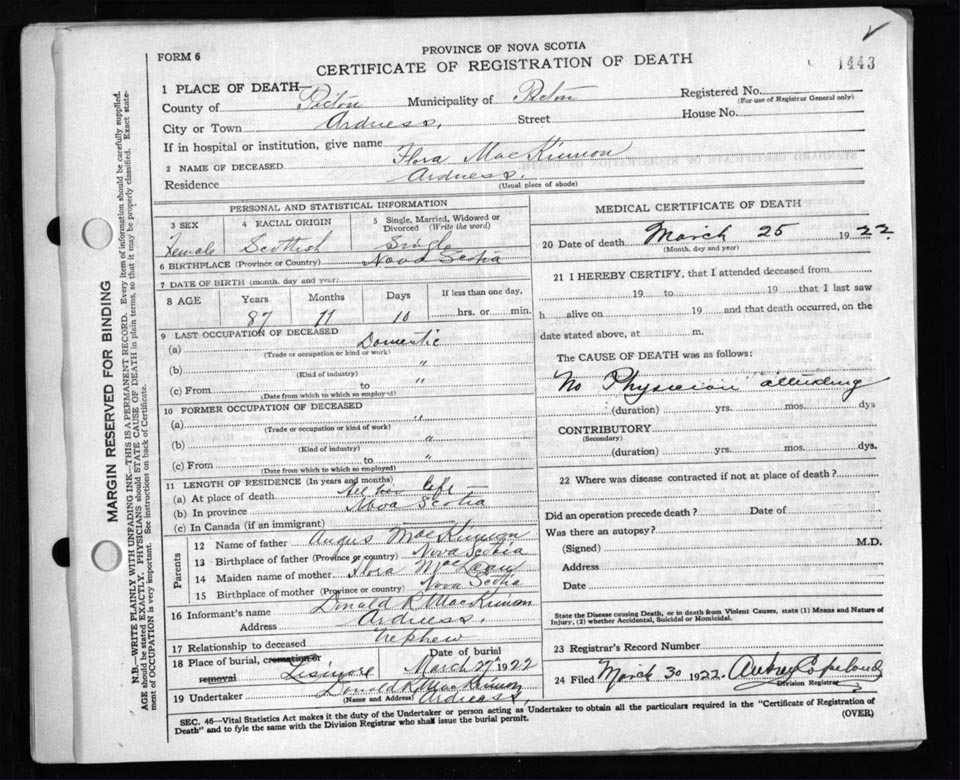 FORM 6
PROVINCE OF NOVA SCOTIA
CERTIFICATE OF REGISTRATION OF DEATH
1443
1 PLACE OF DEATH—
County of Pictou Municipality of Pictou Registered No.
(For use of Registrar General only)
City or Town Ardness, Street House No.
If in hospital or institution, give name
2 NAME OF DECEASED Flora MacKinnon
Residence Ardness.
(Usual place of abode)
PERSONAL AND STATISTICAL INFORMATION
3 SEX 4 RACIAL ORIGIN 5 Single, Married, Widowed or Divorced (Write the word)
Female Scottish Single
6 BIRTHPLACE (Province or Country) Nova Scotia
7 DATE OF BIRTH (month, day and year)
8 AGE Years Months Days If less than one day,
87 11 10 hrs. or min.
9 LAST OCCUPATION OF DECEASED
(a) Domestic
(Trade or occupation or kind of work)
(b) "
(Kind of industry)
(c) From to "
(Date from which to which so employed)
10 FORMER OCCUPATION OF DECEASED
(a) "
(Trade or occupation or kind of work)
(b) "
(Kind of industry)
(c) From to "
(Date from which to which so employed)
11 LENGTH OF RESIDENCE (In years and months)
(a) At place of death All her Life
(b) In province Nova Scotia
(c) In Canada (if an immigrant)
Parents
12 Name of father Angus MacKinnon
13 Birthplace of father (Province or country) Nova Scotia
14 Maiden name of mother Flora MacLean
15 Birthplace of mother (Province or country) Nova Scotia
16 Informant's name Donald R. MacKinnon
Address Ardness.
17 Relationship to deceased Nephew
18 Place of burial, cremation or removal Lismore Date of burial March 27th 1922
19 Undertaker Donald R. MacKinnon
(Name and Address) Ardness
MEDICAL CERTIFICATE OF DEATH
20 Date of death March 25 1922.
(Month, day and year)
21 I HEREBY CERTIFY, that I attended deceased from
19 to 19 that I last saw
h alive on 19 and that death occurred, on the
date stated above, at m.
The CAUSE OF DEATH was as follows:
No Physician attending
(duration) yrs. mos. dys
CONTRIBUTORY
(Secondary)
(duration) yrs. mos. dys.
22 Where was disease contracted if not at place of death?
Did an operation precede death? Date of
Was there an autopsy?
(Signed) M.D.
Address
Date
State the Disease causing Death, or in death from Violent Causes, state (1) Means and Nature of
Injury, (2) whether Accidental, Suicidal or Homicidal.
23 Registrar's Record Number
24 Filed March 30 1922. Aubrey Copeland
Division Registrar
SEC. 46—Vital Statistics Act makes it the duty of the Undertaker or person acting as Undertaker to obtain all the particulars required in the "Certificate of Registration of
Death" and to fyle the same with the Division Registrar who shall issue the burial permit.
(OVER)
MARGIN RESERVED FOR BINDING
N.B.—WRITE PLAINLY WITH UNFADING INK—THIS IS A PERMANENT RECORD. Every item of information should be carefully supplied.
AGE should be stated EXACTLY. PHYSICIANS should STATE CAUSE OF DEATH in plain terms, so that it may be properly classified. Exact state-
ment of OCCUPATION is very important. See instructions on back of Certificate.